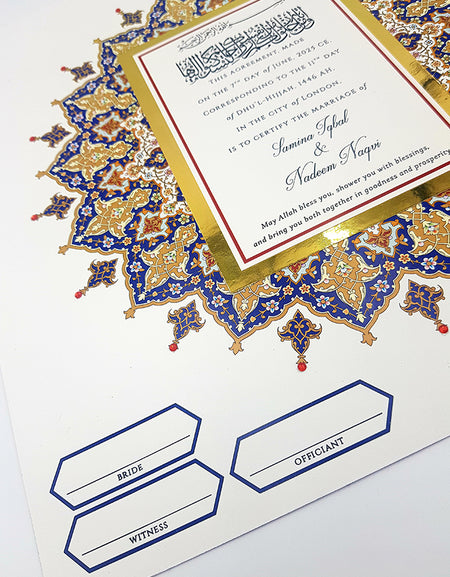 THIS AGREEMENT, MADE
ON THE 7TH DAY OF JUNE, 2025 CE,
CORRESPONDING TO THE 11TH DAY
of DHU'L-HIJJAH, 1446 AH,
IN THE CITY OF LONDON,
IS TO CERTIFY THE MARRIAGE OF
Samina Iqbal
&
Nadeem Naqvi
May Allah bless you, shower you with blessings,
and bring you both together in goodness and prosperity
BRIDE
OFFICIANT
WITNESS